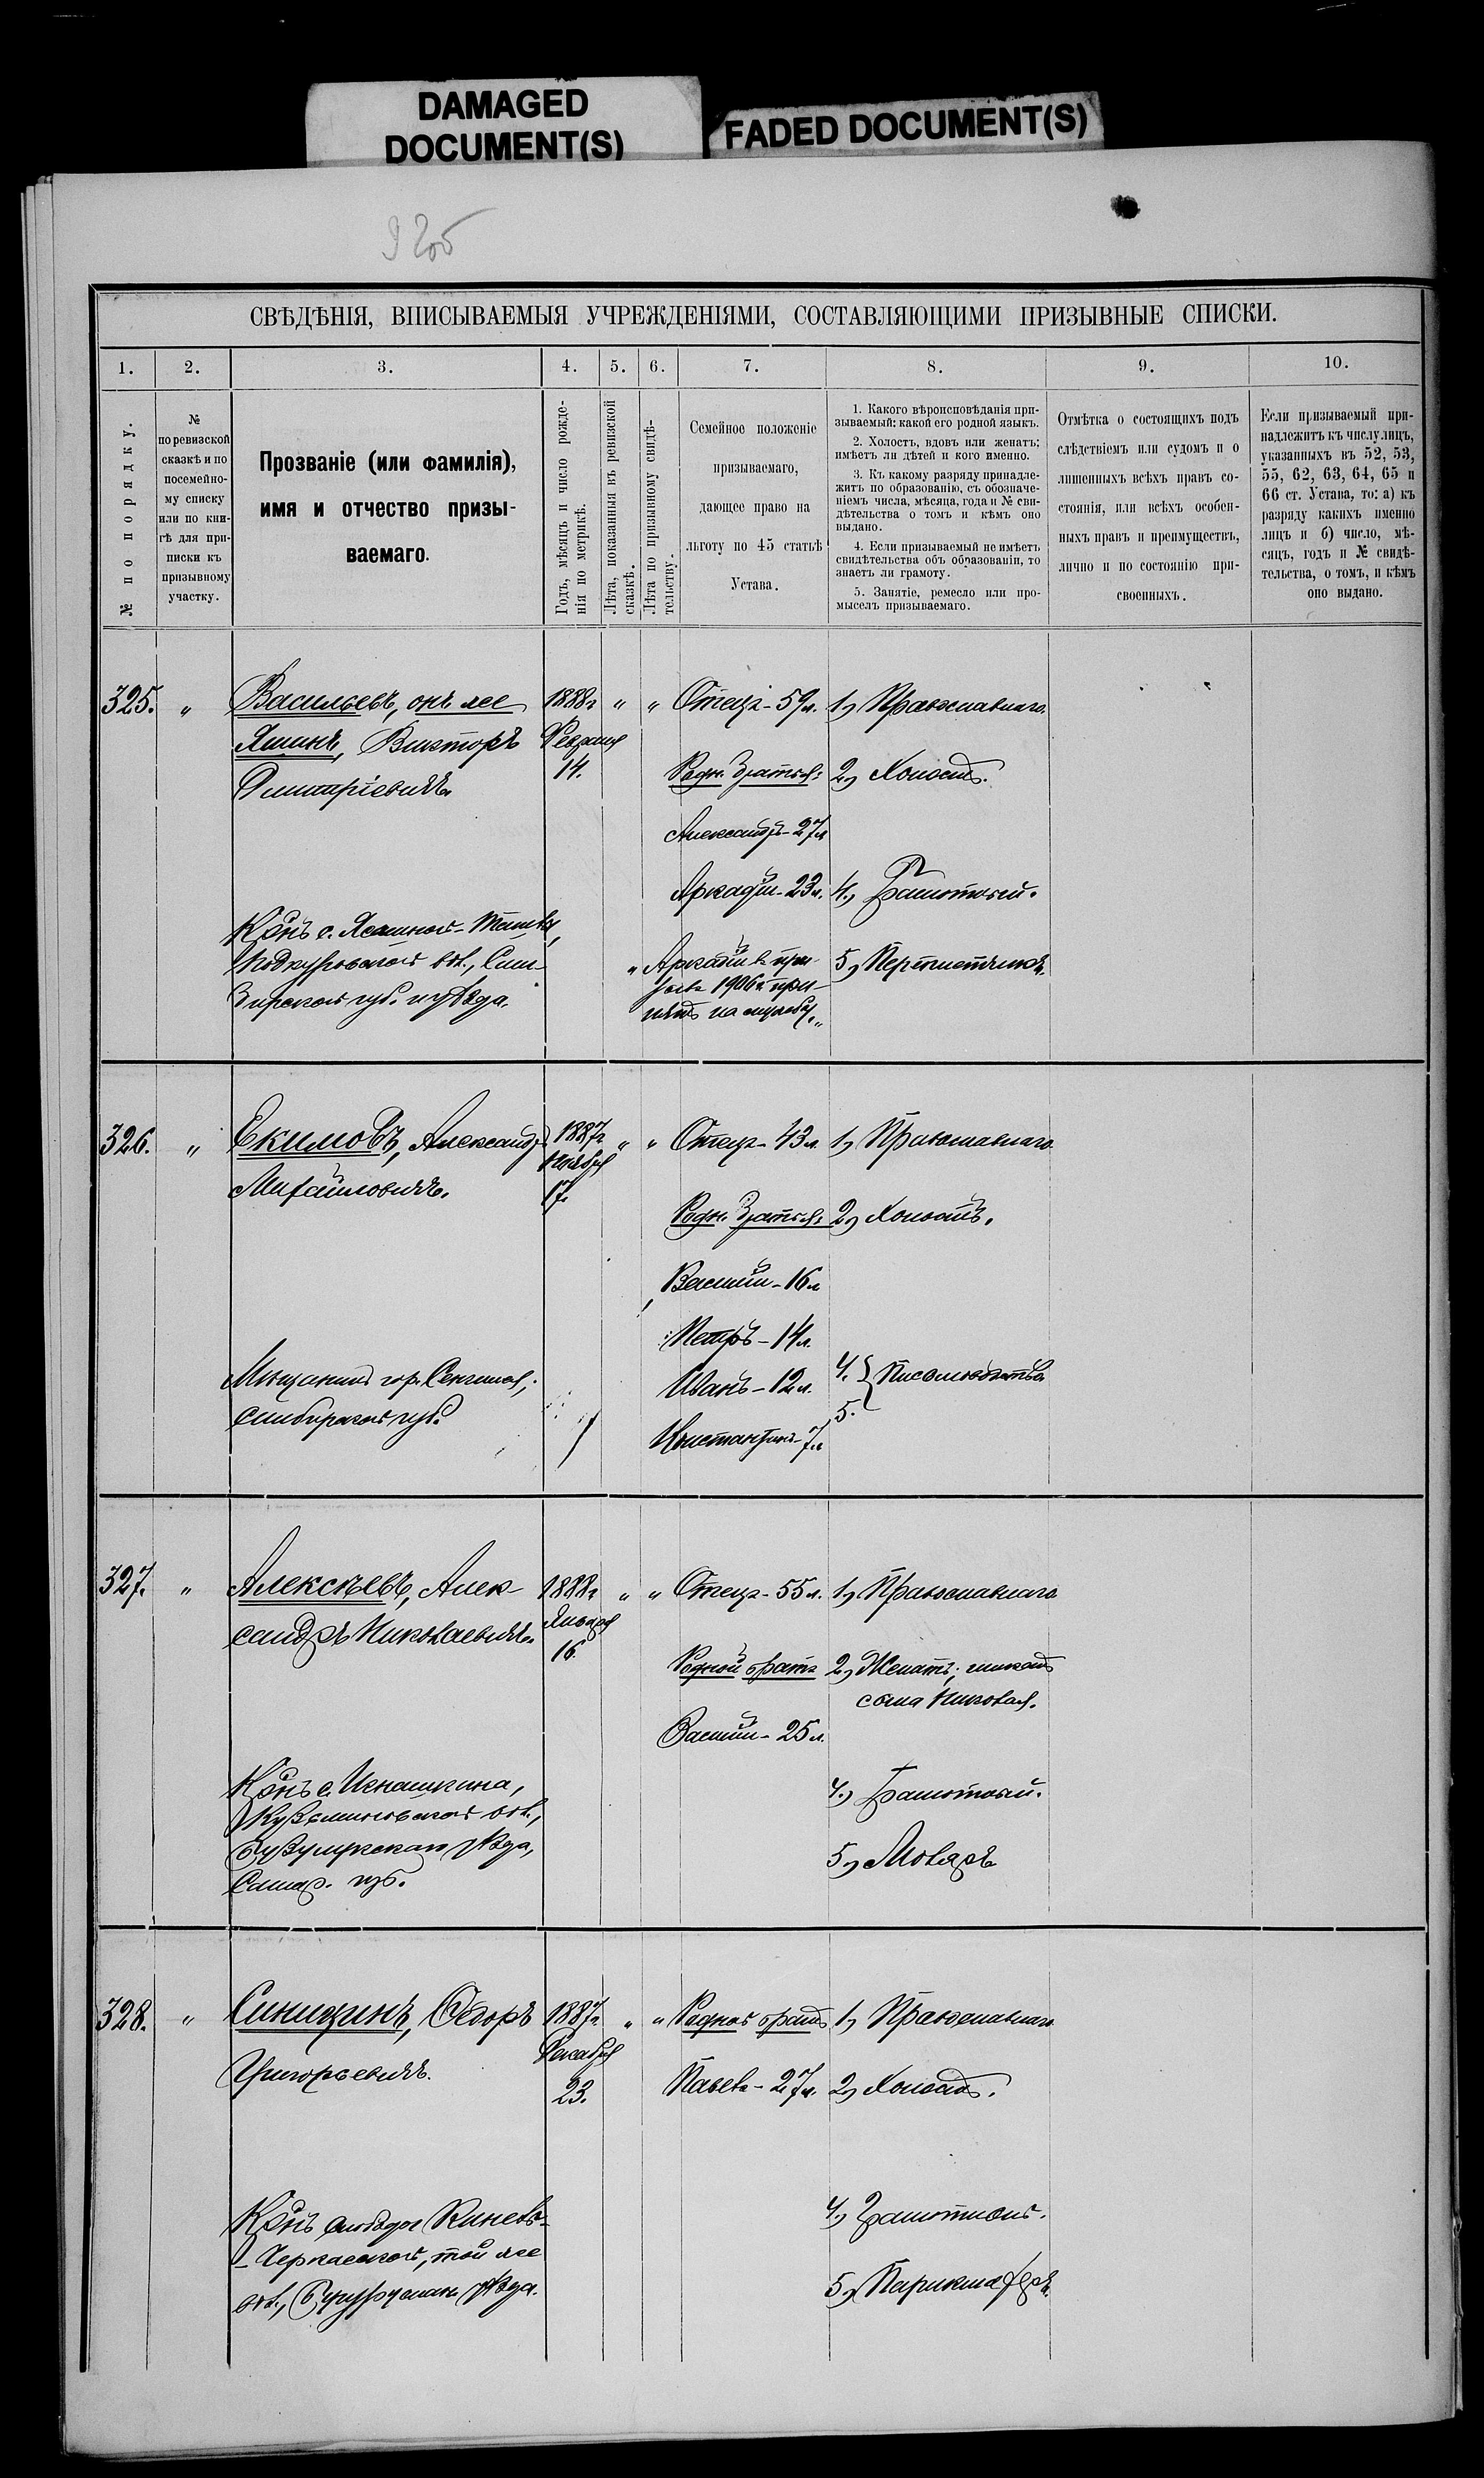 DAMAGED
DOCUMENT(S)
FADED DOCUMENT(S)
92об
СВѢДѢНІЯ, ВПИСЫВАЕМЫЯ УЧРЕЖДЕНІЯМИ, СОСТАВЛЯЮЩИМИ ПРИЗЫВНЫЕ СПИСКИ.
1. 2. 3. 4. 5. 6. 7. 8. 9. 10.
№ по порядку.
№
по ревизской
сказкѣ и по
посемейно-
му списку
или по кни-
гѣ для при-
писки къ
призывному
участку.
Прозваніе (или фамилія),
имя и отчество призы-
ваемаго.
Годъ, мѣсяцъ и число рожде-
нія по метрикѣ.
Лѣта, показанныя въ ревизской
сказкѣ.
Лѣта по призывному свидѣ-
тельству.
Семейное положеніе
призываемаго,
дающее право на
льготу по 45 статьѣ
Устава.
1. Какого вѣроисповѣданія при-
зываемый: какой его родной языкъ.
2. Холостъ, вдовъ или женатъ;
имѣетъ ли дѣтей и кого именно.
3. Къ какому разряду принадле-
житъ по образованію, съ обозначе-
ніемъ числа, мѣсяца, года и № сви-
дѣтельства о томъ и кѣмъ оно
выдано.
4. Если призываемый не имѣетъ
свидѣтельства объ образованіи, то
знаетъ ли грамоту.
5. Занятіе, ремесло или про-
мыселъ призываемаго.
Отмѣтка о состоящихъ подъ
слѣдствіемъ или судомъ и о
лишенныхъ всѣхъ правъ со-
стоянія, или всѣхъ особен-
ныхъ правъ и преимуществъ,
лично и по состоянію при-
своенныхъ.
Если призываемый при-
надлежитъ къ числу лицъ,
указанныхъ въ 52, 53,
55, 62, 63, 64, 65 и
66 ст. Устава, то: а) къ
разряду какихъ именно
лицъ и б) число, мѣ-
сяцъ, годъ и № свидѣ-
тельства, о томъ, и кѣмъ
оно выдано.
325. „ Васильевъ, онъ же
Яшинъ, Викторъ
Дмитріевичъ
Кр-нъ с. Ясашной-Ташлы,
Подкуровской вол., Сим-
бирской губ. и уѣзда.
1888г
Февраля
14.
„ „ Отецъ - 59 л.
Родн. братья:
Александръ - 27 л
Аркадій - 23 л.
„Аркадій въ при-
зывъ 1906 г. при-
нятъ на службу."
1) Православнаго
2) Холостъ.
4.) Грамотный.
5)
326. „ Екимовъ, Александръ
Михайловичъ.
Мѣщанинъ гор. Сенгилея,
Симбирской губ.
1887г
Ноября
17.
„ „ Отецъ - 43 л.
Родн. братья:
Василій - 16 л
Петръ - 14 л.
Иванъ - 12 л.
Константинъ - 7 л
1) Православнаго
2) Холостъ.
4. } Письмоводитель
5.
327. „ Алексѣевъ, Алек-
сандръ Николаевичъ
Кр-нъ с. Игнашкина,
Кузьминовской вол.,
Бузулукскаго уѣзда,
Самар. губ.
1888г
Января
16
„ „ Отецъ - 55 л.
Родной братъ
Василій - 25 л.
1) Православнаго
2) Женатъ; имѣетъ
сына Николая.
4.) Грамотный.
5) Маляръ
328. „ Синицинъ, Ѳедоръ
Григорьевичъ.
Кр-нъ слободы Кинель-
-Черкасской, той же
вол., Бугурусланск. уѣзда.
1887г
Декабря
23.
„ „ Родной братъ
Павелъ - 27 л.
1) Православнаго
2) Холостъ.
4) Грамотный.
5) Парикмахеръ